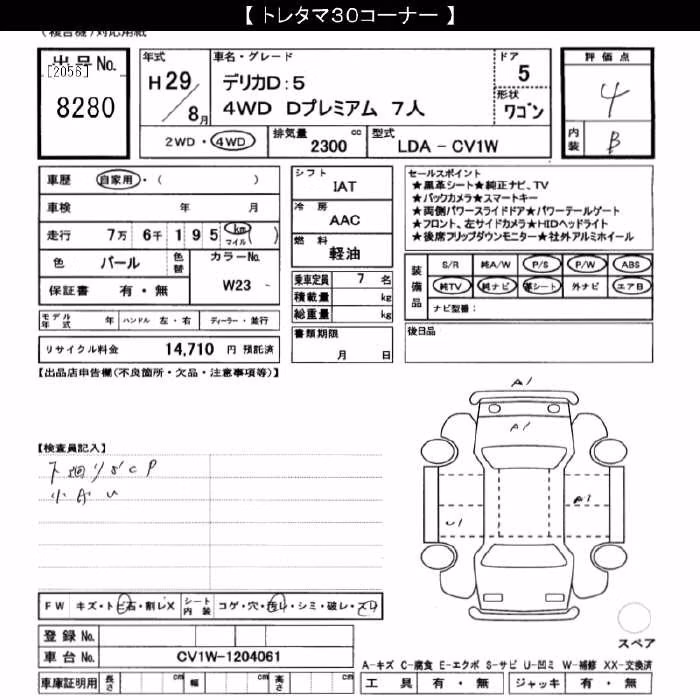 【 トレタマ30コーナー 】
(複合機)対応用紙
出品No.
[2056]
8280
年式
H29
8月
車名・グレード
デリカD:5
4WD Dプレミアム 7人
ドア
5
形状
ワゴン
評価点
4
内装
B
2WD・4WD
排気量
2300 cc
型式
LDA - CV1W
車歴 自家用・( )
車検 年 月
走行 7万 6千 1 9 5 km マイル ( )
色 パール
色替
カラーNo.
W23 -
保証書 有・無
シフト
IAT
冷房
AAC
燃料
軽油
乗車定員 7 名
積載量 kg
総重量 kg
書類期限
月 日
セールスポイント
★黒革シート★純正ナビ、TV
★バックカメラ★スマートキー
★両側パワースライドドア★パワーテールゲート
★フロント、左サイドカメラ★HIDヘッドライト
★後席フリップダウンモニター★社外アルミホイール
装備品
S/R 純A/W P/S P/W ABS
純TV 純ナビ 革シート 外ナビ エアB
ナビ型番:
モデル年式 年 ハンドル 左・右 ディーラー・並行
後日品
リサイクル料金 14,710 円 預託済
【出品店申告欄(不良箇所・欠品・注意事項等)】
A1
A1
A1
U1
【検査員記入】
下廻りサCP
小A U
FW キズ・トビ石・割レX
シート内装 コゲ・穴・汚レ・シミ・破レ・スレ
登録No.
車台No. CV1W-1204061
車庫証明用 長さ cm 幅 cm 高さ cm
スペア
A-キズ C-腐食 E-エクボ S-サビ U-凹ミ W-補修 XX-交換済
工具 有・無 ジャッキ 有・無